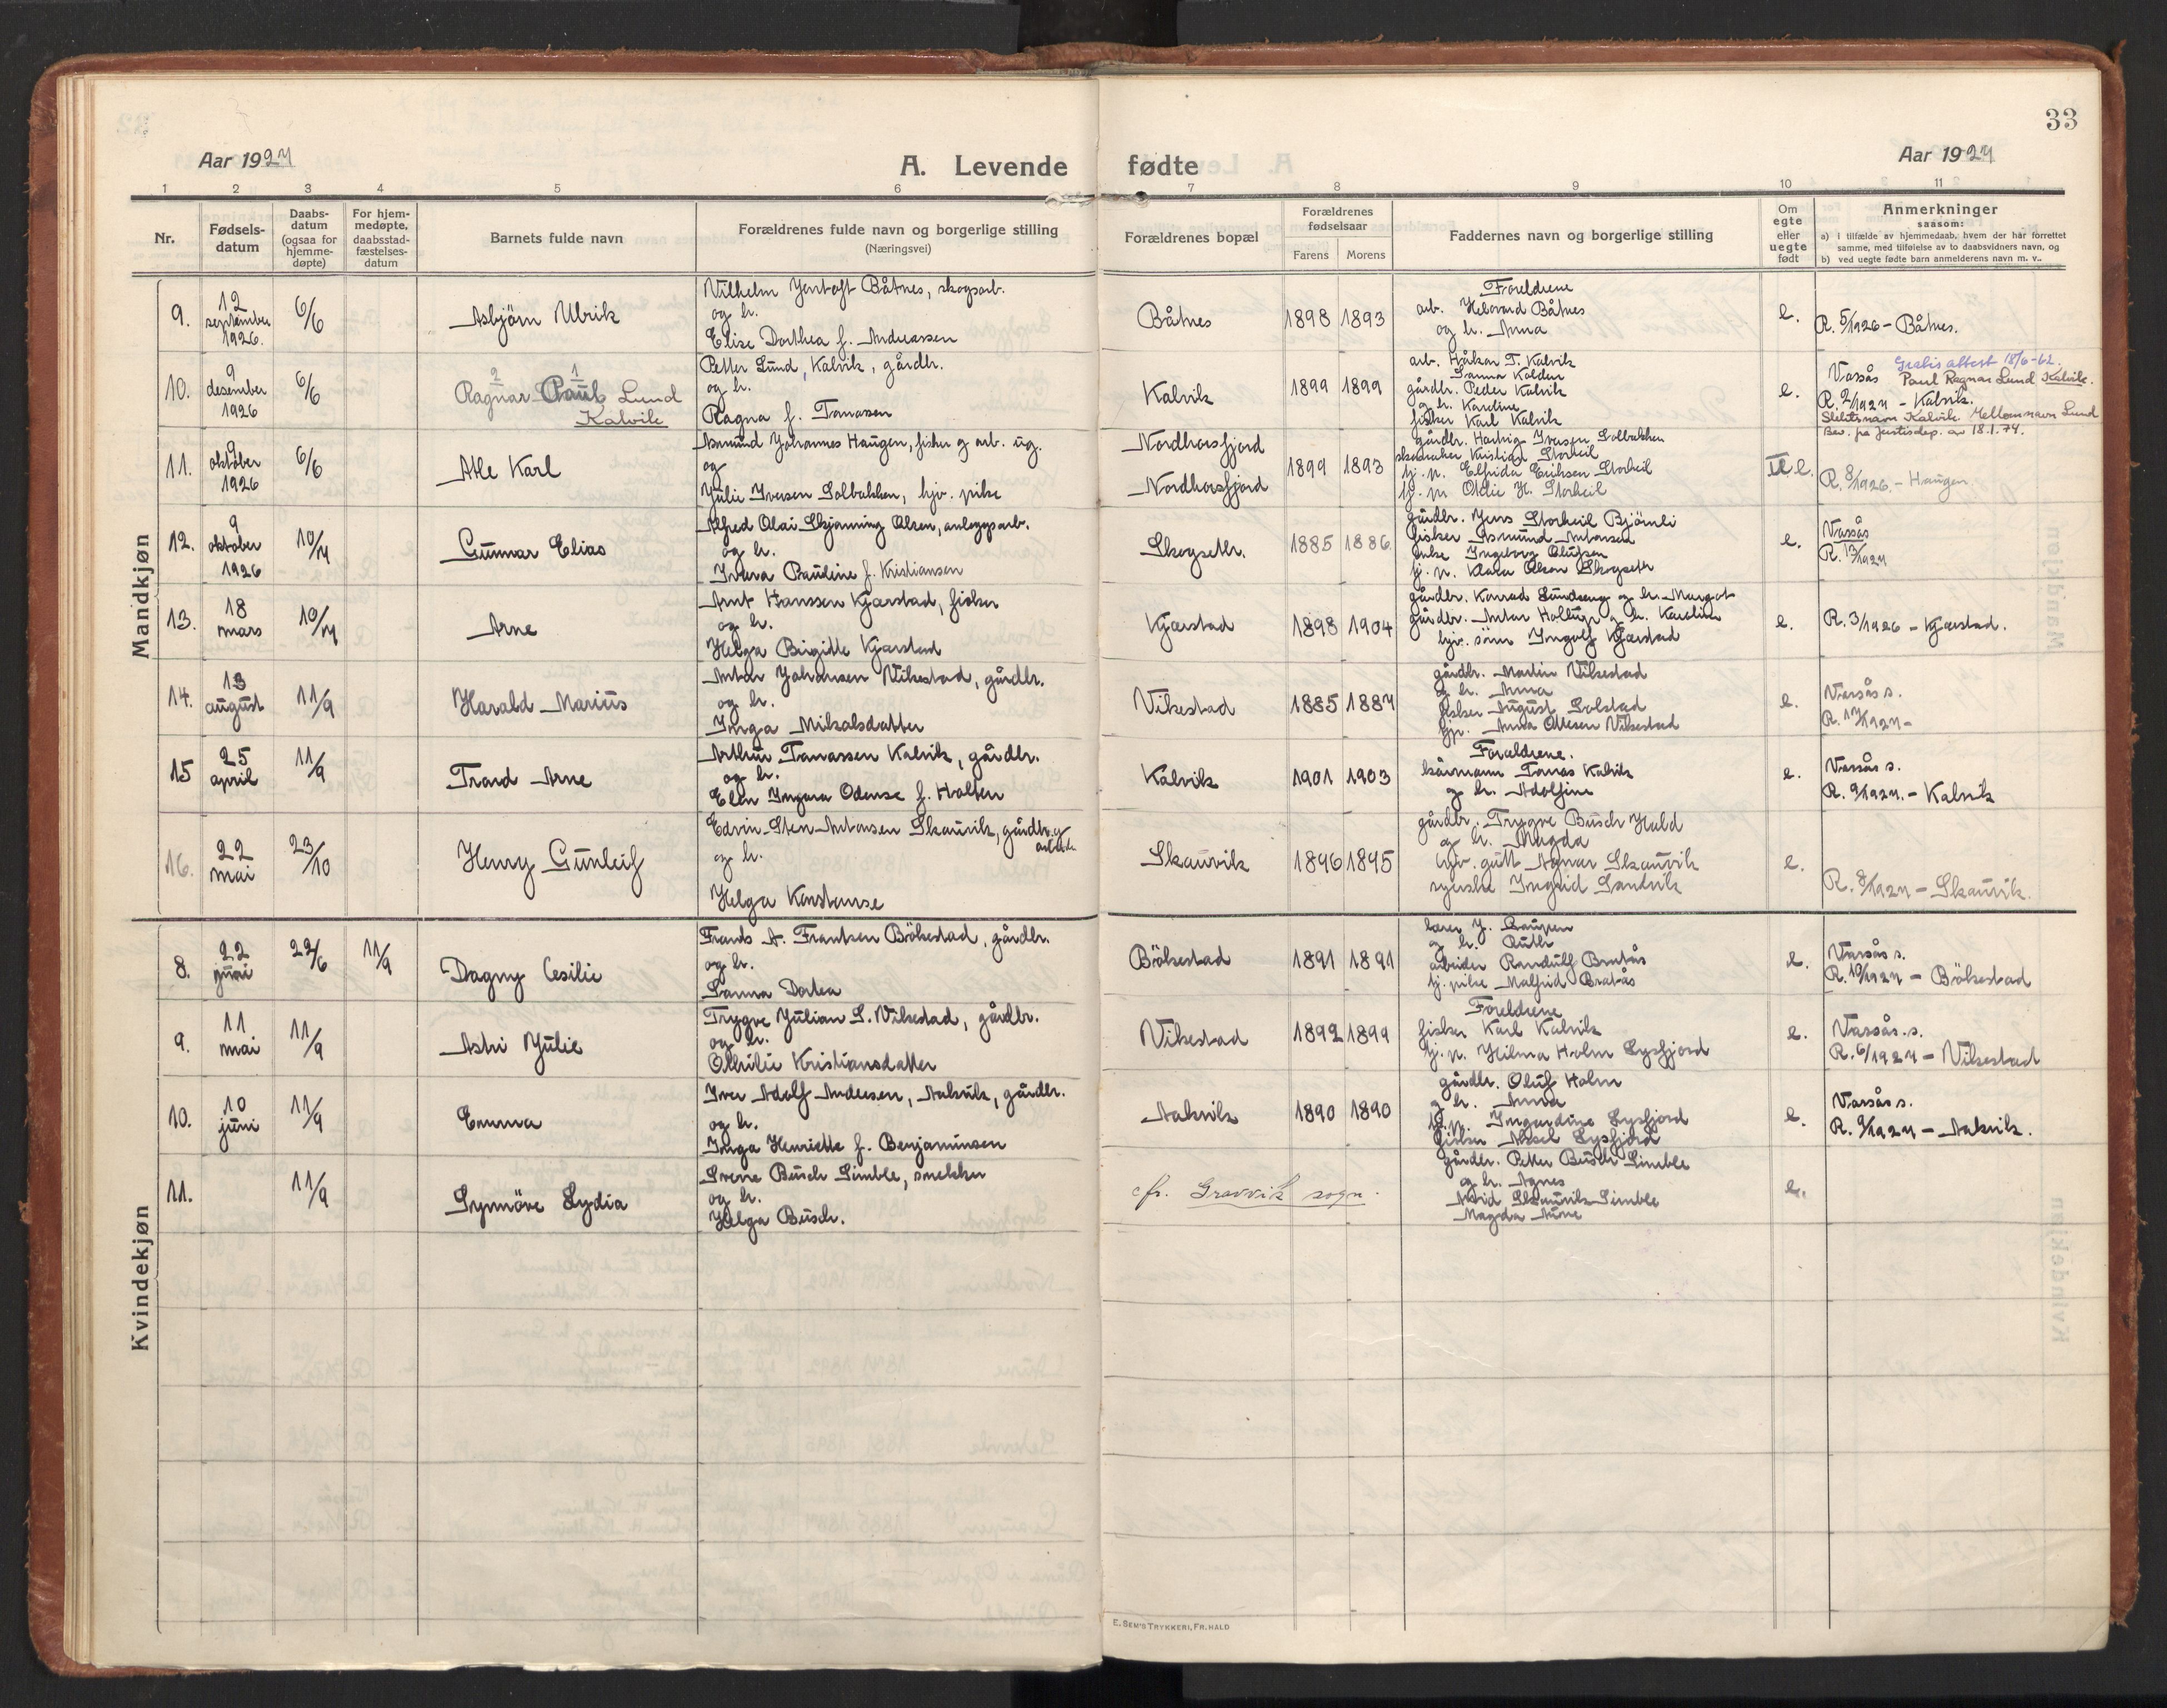 33
Aar 1927
A. Levende fødte
Aar 1927
1 2 3 4 5 6 7 8 9 10 11
Nr.
Fødsels-
datum
Daabs-
datum
(ogsaa for
hjemme-
døpte)
For hjem-
medøpte,
daabsstad-
fæstelses-
datum
Barnets fulde navn
Forældrenes fulde navn og borgerlige stilling
(Næringsvei)
Forældrenes bopæl
Forældrenes
fødselsaar
Farens Morens
Faddernes navn og borgerlige stilling
Om
egte
eller
uegte
født
Anmerkninger
saasom:
a) i tilfælde av hjemmedaab, hvem der har forrettet
samme, med tilføielse av to daabsvidners navn, og
b) ved uegte fødte barn anmelderens navn m. v..
Mandkjøn
9.
12
september
1926.
6/6
Asbjørn Ulrik
Vilhelm Jentoft Båtnes, skogsarb.
og h.
Elise Dorthea f. Andreassen
Båtnes
1898 1893
Foreldrene
arb. Båtnes
og h. Anna
e.
R. 5/1926 - Båtnes.
10.
9
desember
1926
6/6
2 1
Ragnar Paul Lund
Kalvik
Petter Lund, Kalvik, gårdbr.
og h.
Ragna f. Tomasen
Kalvik
1899 1899
arb. Håkon T. Kalvik
Sanna Kolden
gårdbr. Peder Kalvik
og h. Karoline
fisker Karl Kalvik
e.
Gratis attest 18/6-62.
Vassås Paul Ragnar Lund Kalvik.
R. 2/1927 - Kalvik.
Slektsnavn Kalvik. Mellomnavn Lund
Bev. fra Justisdep. av 18.1.74.
11.
9
oktober
1926
6/6
Atle Karl
Asmund Johannes Haugen, fisker og arb. ug.
og
Julie Iversen Solbakken, hjv. pike
Nordhorsfjord
Nordhorsfjord
1899 1893
gårdbr. Hartvig Iversen Solbakken
skomaker Kristian Storheil
tj. p. Elfrida Eriksen Storheil
tj. p. Otelie H. Storheil
U.e.
R. 8/1926 - Haugen
12.
9
oktober
1926
10/7
Gunnar Elias
Alfred Olai Skjønning Olsen, anleggsarb.
og h.
Ivara Pauline f. Kristiansen
Skogsetr.
1885 1886
gårdbr. Jens Storheil Bjørnli
fisker Asmund Antonsen
enke Ingeborg Olufsen
tj. p. Klara Olsen Skogsetr
e.
Vassås
R. 13/1927
13.
18
mars
10/7
Arne
Arnt Hanssen Kjærstad, fisker
og h.
Helga Birgitte Kjærstad
Kjærstad
1898 1904
gårdbr. Konrad Lundseng og h. Margot
gårdbr. Anton Hollup og h. Karoline
hjv. sønn Ingolf Kjærstad
e.
R. 3/1926 - Kjærstad.
14.
13
august
11/9
Harald Marius
Anton Johansen Vikestad, gårdbr.
og h.
Inga Mikalsdatter
Vikestad
1885 1887
gårdbr. Martin Vikestad
og h. Anna
fisker August Solstad
tjp. Anna Ottesen Vikestad
e.
Vassås s.
R. 17/1927 -
15
25
april
11/9
Trond Arne
Arthur Tomassen Kalvik, gårdbr.
og h.
Elen Ingvara Odense f. Holten
Kalvik
1901 1903
Foreldrene.
kårmann Tomas Kalvik
og h. Adolfine
e.
Vassås s.
R. 9/1927. - Kalvik
16.
22
mai
23/10
Henry Gunleif
Edvin Sten Antonsen Skauvik, gårdbr. og
arbeider
og h.
Helga Konstanse
Skauvik
1896 1895
gårdbr. Trygve Busch Hald
og h. Magda
hjv. gutt Agnar Skauvik
syerske Ingrid Sandvik
e.
R. 8/1927 - Skauvik.
Kvindekjøn
8.
22
juni
22/6
11/9
Dagny Cesilie
Frants A. Frantsen Bøkestad, gårdbr.
og h.
Sanna Dortea
Bøkestad
1891 1891
lærer J. Laupen
og h. Ruth
arbeider Randulf Bratås
tj. pike Malfrid Bratås
e.
Vassås s.
R. 10/1927 - Bøkestad
9.
11
mai
11/9
Astri Julie
Trygve Julian S. Vikestad, gårdbr.
og h.
Othilie Kristiansdatter
Vikestad
1892 1899
Foreldrene
fisker Karl Kalvik
tj. p. Hilma Holm Lysfjord
e.
Vassås. s.
R. 6/1927 - Vikestad
10.
10
juni
11/9
Emma
Iver Adolf Andersen, Aakvik, gårdbr.
og h.
Inga Henriette f. Benjaminsen
Aakvik
1890 1890
gårdbr. Oluf Holm
og h. Anna
tj. p. Ingardine Lysfjord
fisker Aksel Lysfjord
e.
Vassås s.
R. 9/1927 - Aakvik.
11.
11/9
Synnøve Lydia
Sverre Busch Simble, snekker
og h.
Helga Busch.
cfr. Gravvik sogn.
gårdbr. Petter Busch Simble
og h. Agnes
Astrid Skauvik Simble
Magda Aune
e.
E. SEM'S TRYKKERI, FR.HALD